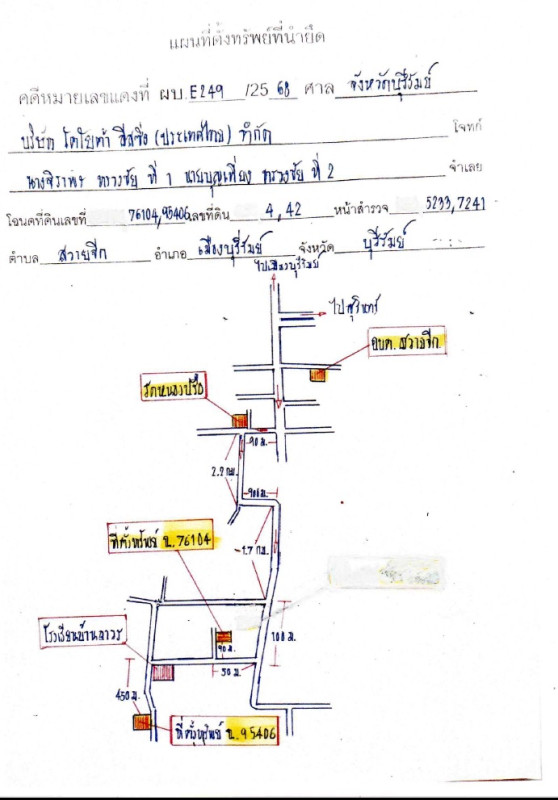 แผนที่ตั้งทรัพย์ที่นำยึด
คดีหมายเลขแดงที่ ผบ.E249 /25 68 ศาล จังหวัดบุรีรัมย์
บริษัท โตโยต้า ลีสซิ่ง (ประเทศไทย) จำกัด โจทก์
ที่ 1 นายบุญเที่ยง ที่ 2 จำเลย
โฉนดที่ดินเลขที่ 76104,95406 เลขที่ดิน 4,42 หน้าสำรวจ 5233,7241
ตำบล สวายจีก อำเภอ เมืองบุรีรัมย์ จังหวัด บุรีรัมย์
ไปเมืองบุรีรัมย์
ไปสุรินทร์
อบต.สวายจีก
วัดหนองปรือ
90 ม.
2.2 กม.
90 ม.
1.7 กม.
ที่ตั้งทรัพย์ ฉ.76104
โรงเรียนบ้านถาวร
100 ม.
90 ม.
50 ม.
450 ม.
ที่ตั้งทรัพย์ ฉ.95406